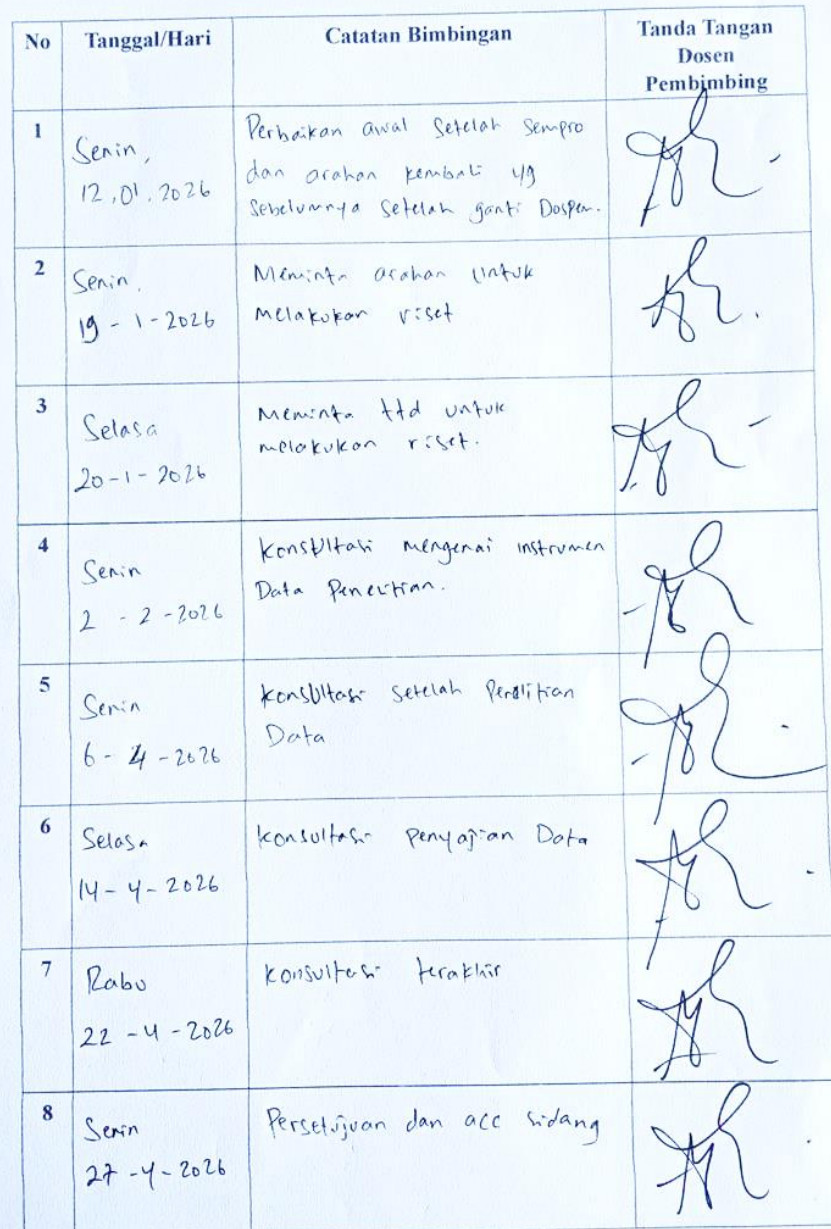 No
Tanggal/Hari
Catatan Bimbingan
Tanda Tangan
Dosen
Pembimbing
1
Senin,
12.01.2026
Perbaikan awal Setelah Sempro
dan arahan kembali yg
Sebelumnya Setelah ganti Dospem.
2
Senin.
19 - 1 - 2026
Meminta arahan Untuk
Melakukan riset
3
Selasa
20 - 1 - 2026
Meminta ttd untuk
melakukan riset.
4
Senin
2 - 2 - 2026
Konsultasi mengenai instrumen
Data Penelitian.
5
Senin
6 - 4 - 2026
Konsultasi setelah Penelitian
Data
6
Selasa
14 - 4 - 2026
Konsultasi penyajian Data
7
Rabu
22 - 4 - 2026
Konsultasi terakhir
8
Senin
27 - 4 - 2026
Persetujuan dan acc sidang